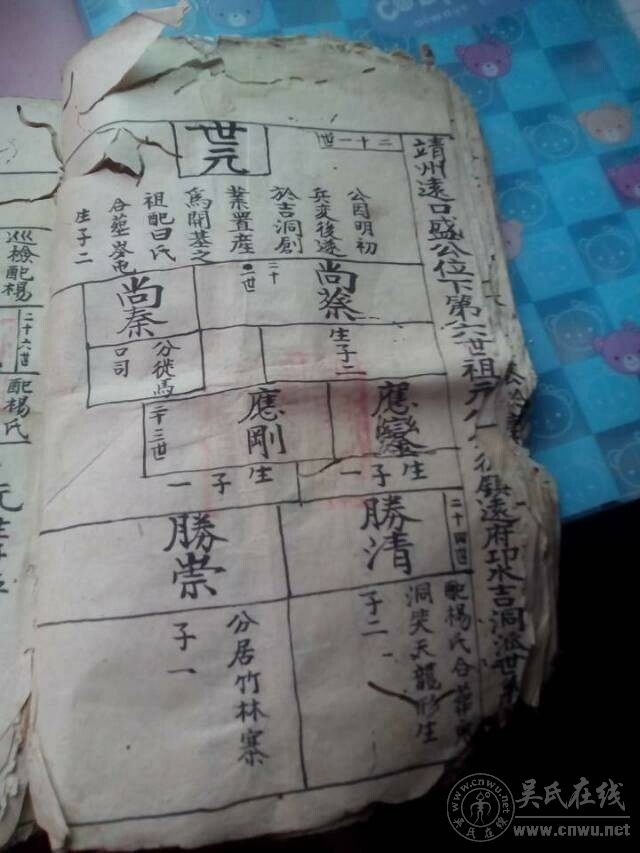 靖州遠口盛公位下第六世祖元
鎮遠府邛水吉洞派世系
二十一世
世元
公因明初
兵变後遂
於吉洞創
業置産
為開基之
祖配田氏
合塟岑屯
生子二
二十二世
尚荣
生子二
尚秦
分徙馬
口司
二十三世
應鑾
生子一
應剛
生子一
二十四世
勝清
配楊氏合葬
洞㚐天龍形生
子二
勝崇
分居竹林寨
子一
巡檢配楊
二十六世
配楊氏
吴氏在线
www.cnwu.net